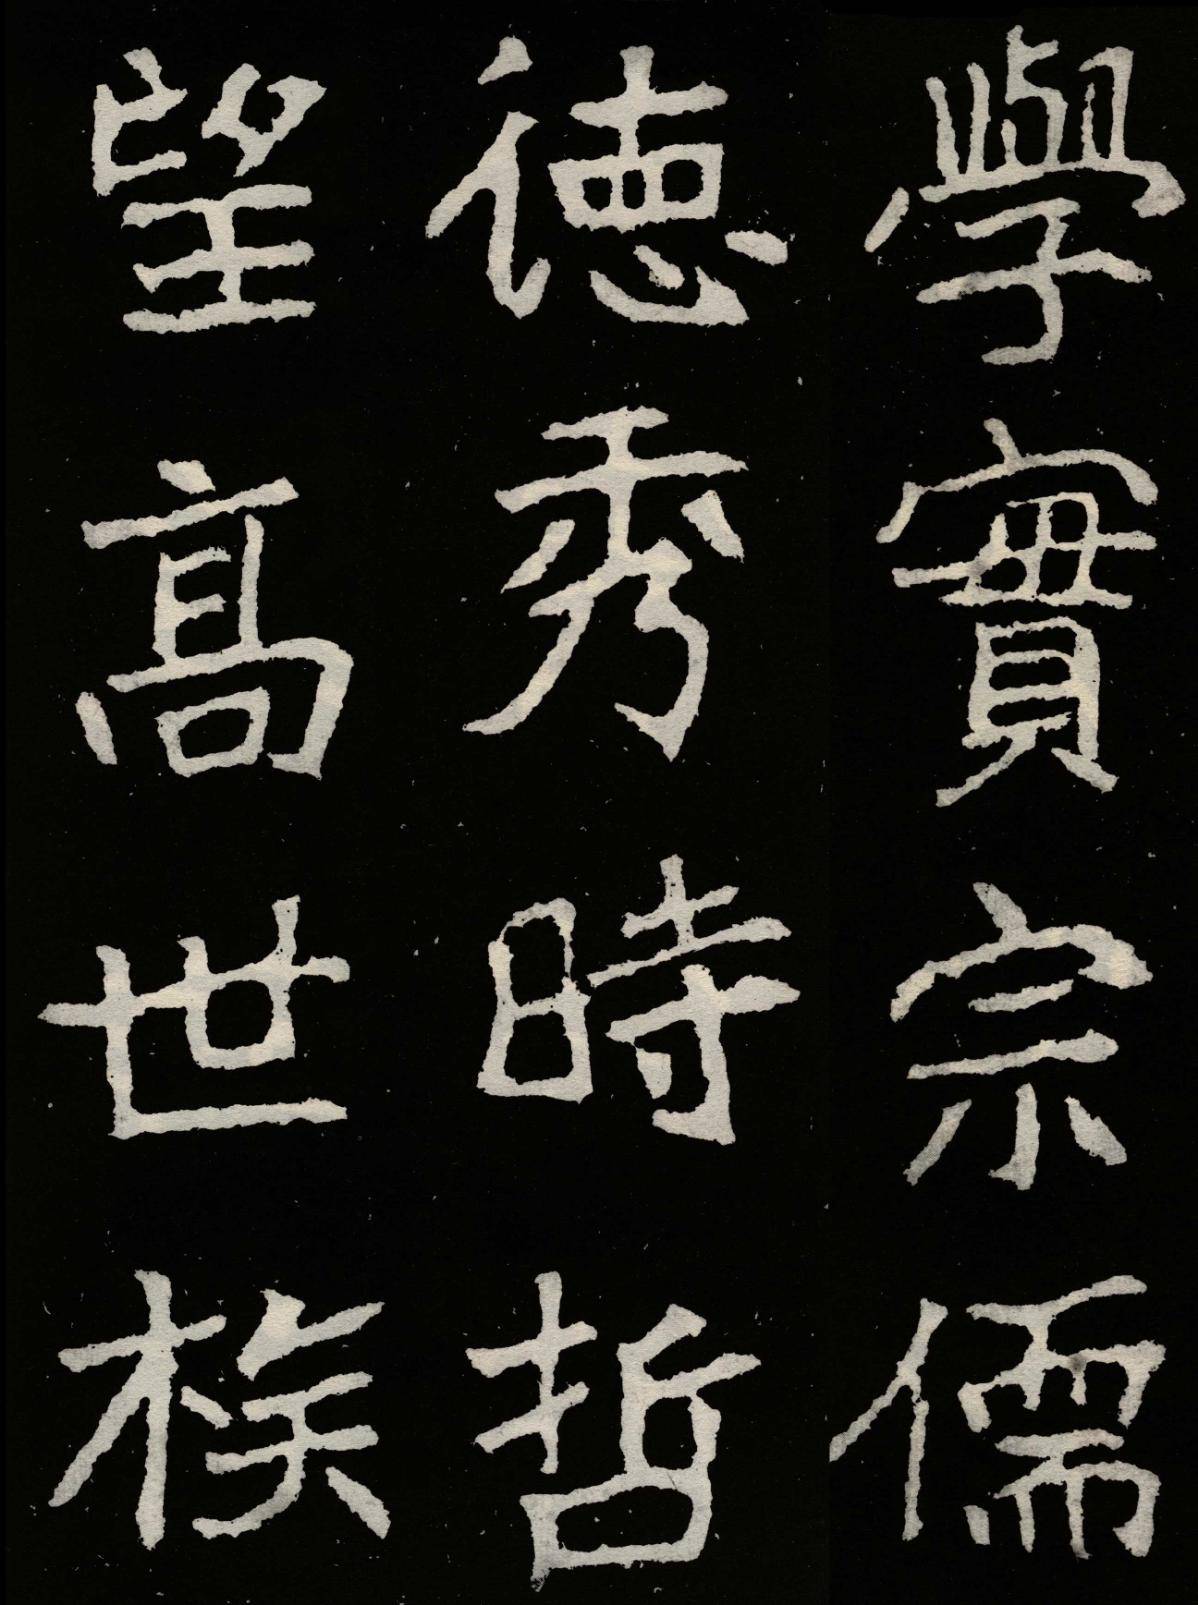 學實宗儒
德秀時哲
望高世族